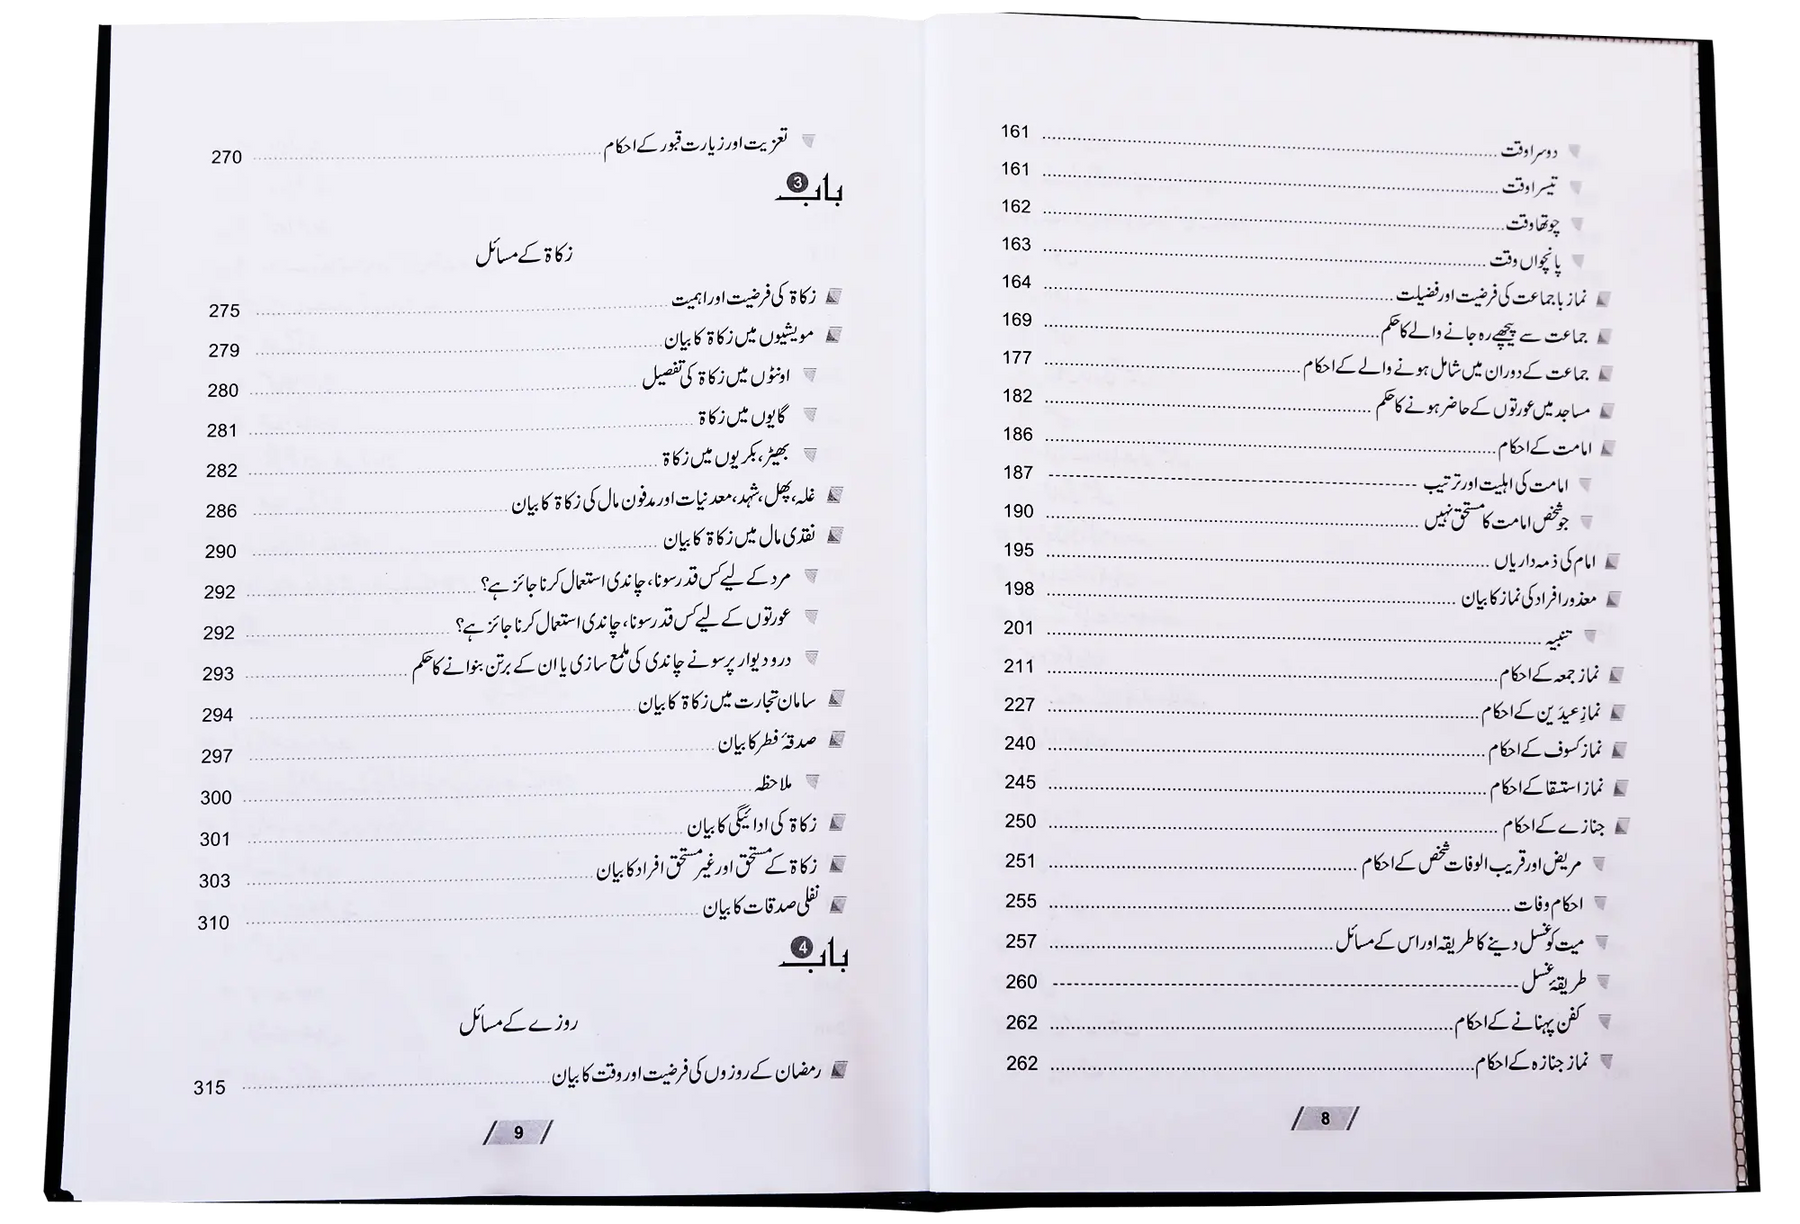 دوسرا وقت ........ 161
تیسرا وقت ........ 161
چوتھا وقت ........ 162
پانچواں وقت ........ 163
نماز باجماعت کی فرضیت اور فضیلت ........ 164
جماعت سے پیچھے رہ جانے والے کا حکم ........ 169
جماعت کے دوران میں شامل ہونے والے کے احکام ........ 177
مساجد میں عورتوں کے حاضر ہونے کا حکم ........ 182
امامت کے احکام ........ 186
امامت کی اہلیت اور ترتیب ........ 187
جو شخص امامت کا مستحق نہیں ........ 190
امام کی ذمہ داریاں ........ 195
معذور افراد کی نماز کا بیان ........ 198
تنبیہ ........ 201
نماز جمعہ کے احکام ........ 211
نمازِ عیدَین کے احکام ........ 227
نماز کسوف کے احکام ........ 240
نماز استسقا کے احکام ........ 245
جنازے کے احکام ........ 250
مریض اور قریب الوفات شخص کے احکام ........ 251
احکام وفات ........ 255
میت کو غسل دینے کا طریقہ اور اس کے مسائل ........ 257
طریقۂ غسل ........ 260
کفن پہنانے کے احکام ........ 262
نماز جنازہ کے احکام ........ 262
8
تعزیت اور زیارت قبور کے احکام ........ 270
باب 3
زکاۃ کے مسائل
زکاۃ کی فرضیت اور اہمیت ........ 275
مویشیوں میں زکاۃ کا بیان ........ 279
اونٹوں میں زکاۃ کی تفصیل ........ 280
گایوں میں زکاۃ ........ 281
بھیڑ، بکریوں میں زکاۃ ........ 282
غلہ، پھل، شہد، معدنیات اور مدفون مال کی زکاۃ کا بیان ........ 286
نقدی مال میں زکاۃ کا بیان ........ 290
مرد کے لیے کس قدر سونا، چاندی استعمال کرنا جائز ہے؟ ........ 292
عورتوں کے لیے کس قدر سونا، چاندی استعمال کرنا جائز ہے؟ ........ 292
در و دیوار پر سونے چاندی کی ملمع سازی یا ان کے برتن بنوانے کا حکم ........ 293
سامان تجارت میں زکاۃ کا بیان ........ 294
صدقۂ فطر کا بیان ........ 297
ملاحظہ ........ 300
زکاۃ کی ادائیگی کا بیان ........ 301
زکاۃ کے مستحق اور غیر مستحق افراد کا بیان ........ 303
نفلی صدقات کا بیان ........ 310
باب 4
روزے کے مسائل
رمضان کے روزوں کی فرضیت اور وقت کا بیان ........ 315
9